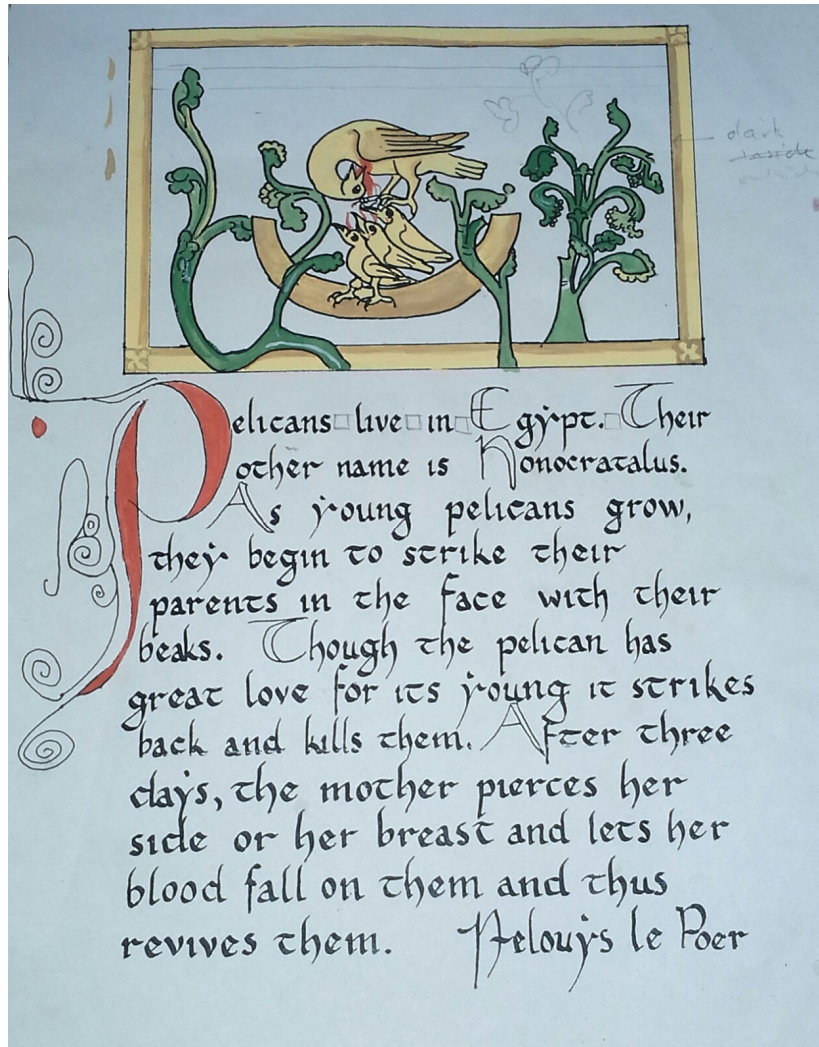 Pelicans live in Egypt. Their
other name is Honocratalus.
As young pelicans grow,
they begin to strike their
parents in the face with their
beaks. Though the pelican has
great love for its young it strikes
back and kills them. After three
days, the mother pierces her
side or her breast and lets her
blood fall on them and thus
revives them. Helouys le Poer
dark
inside